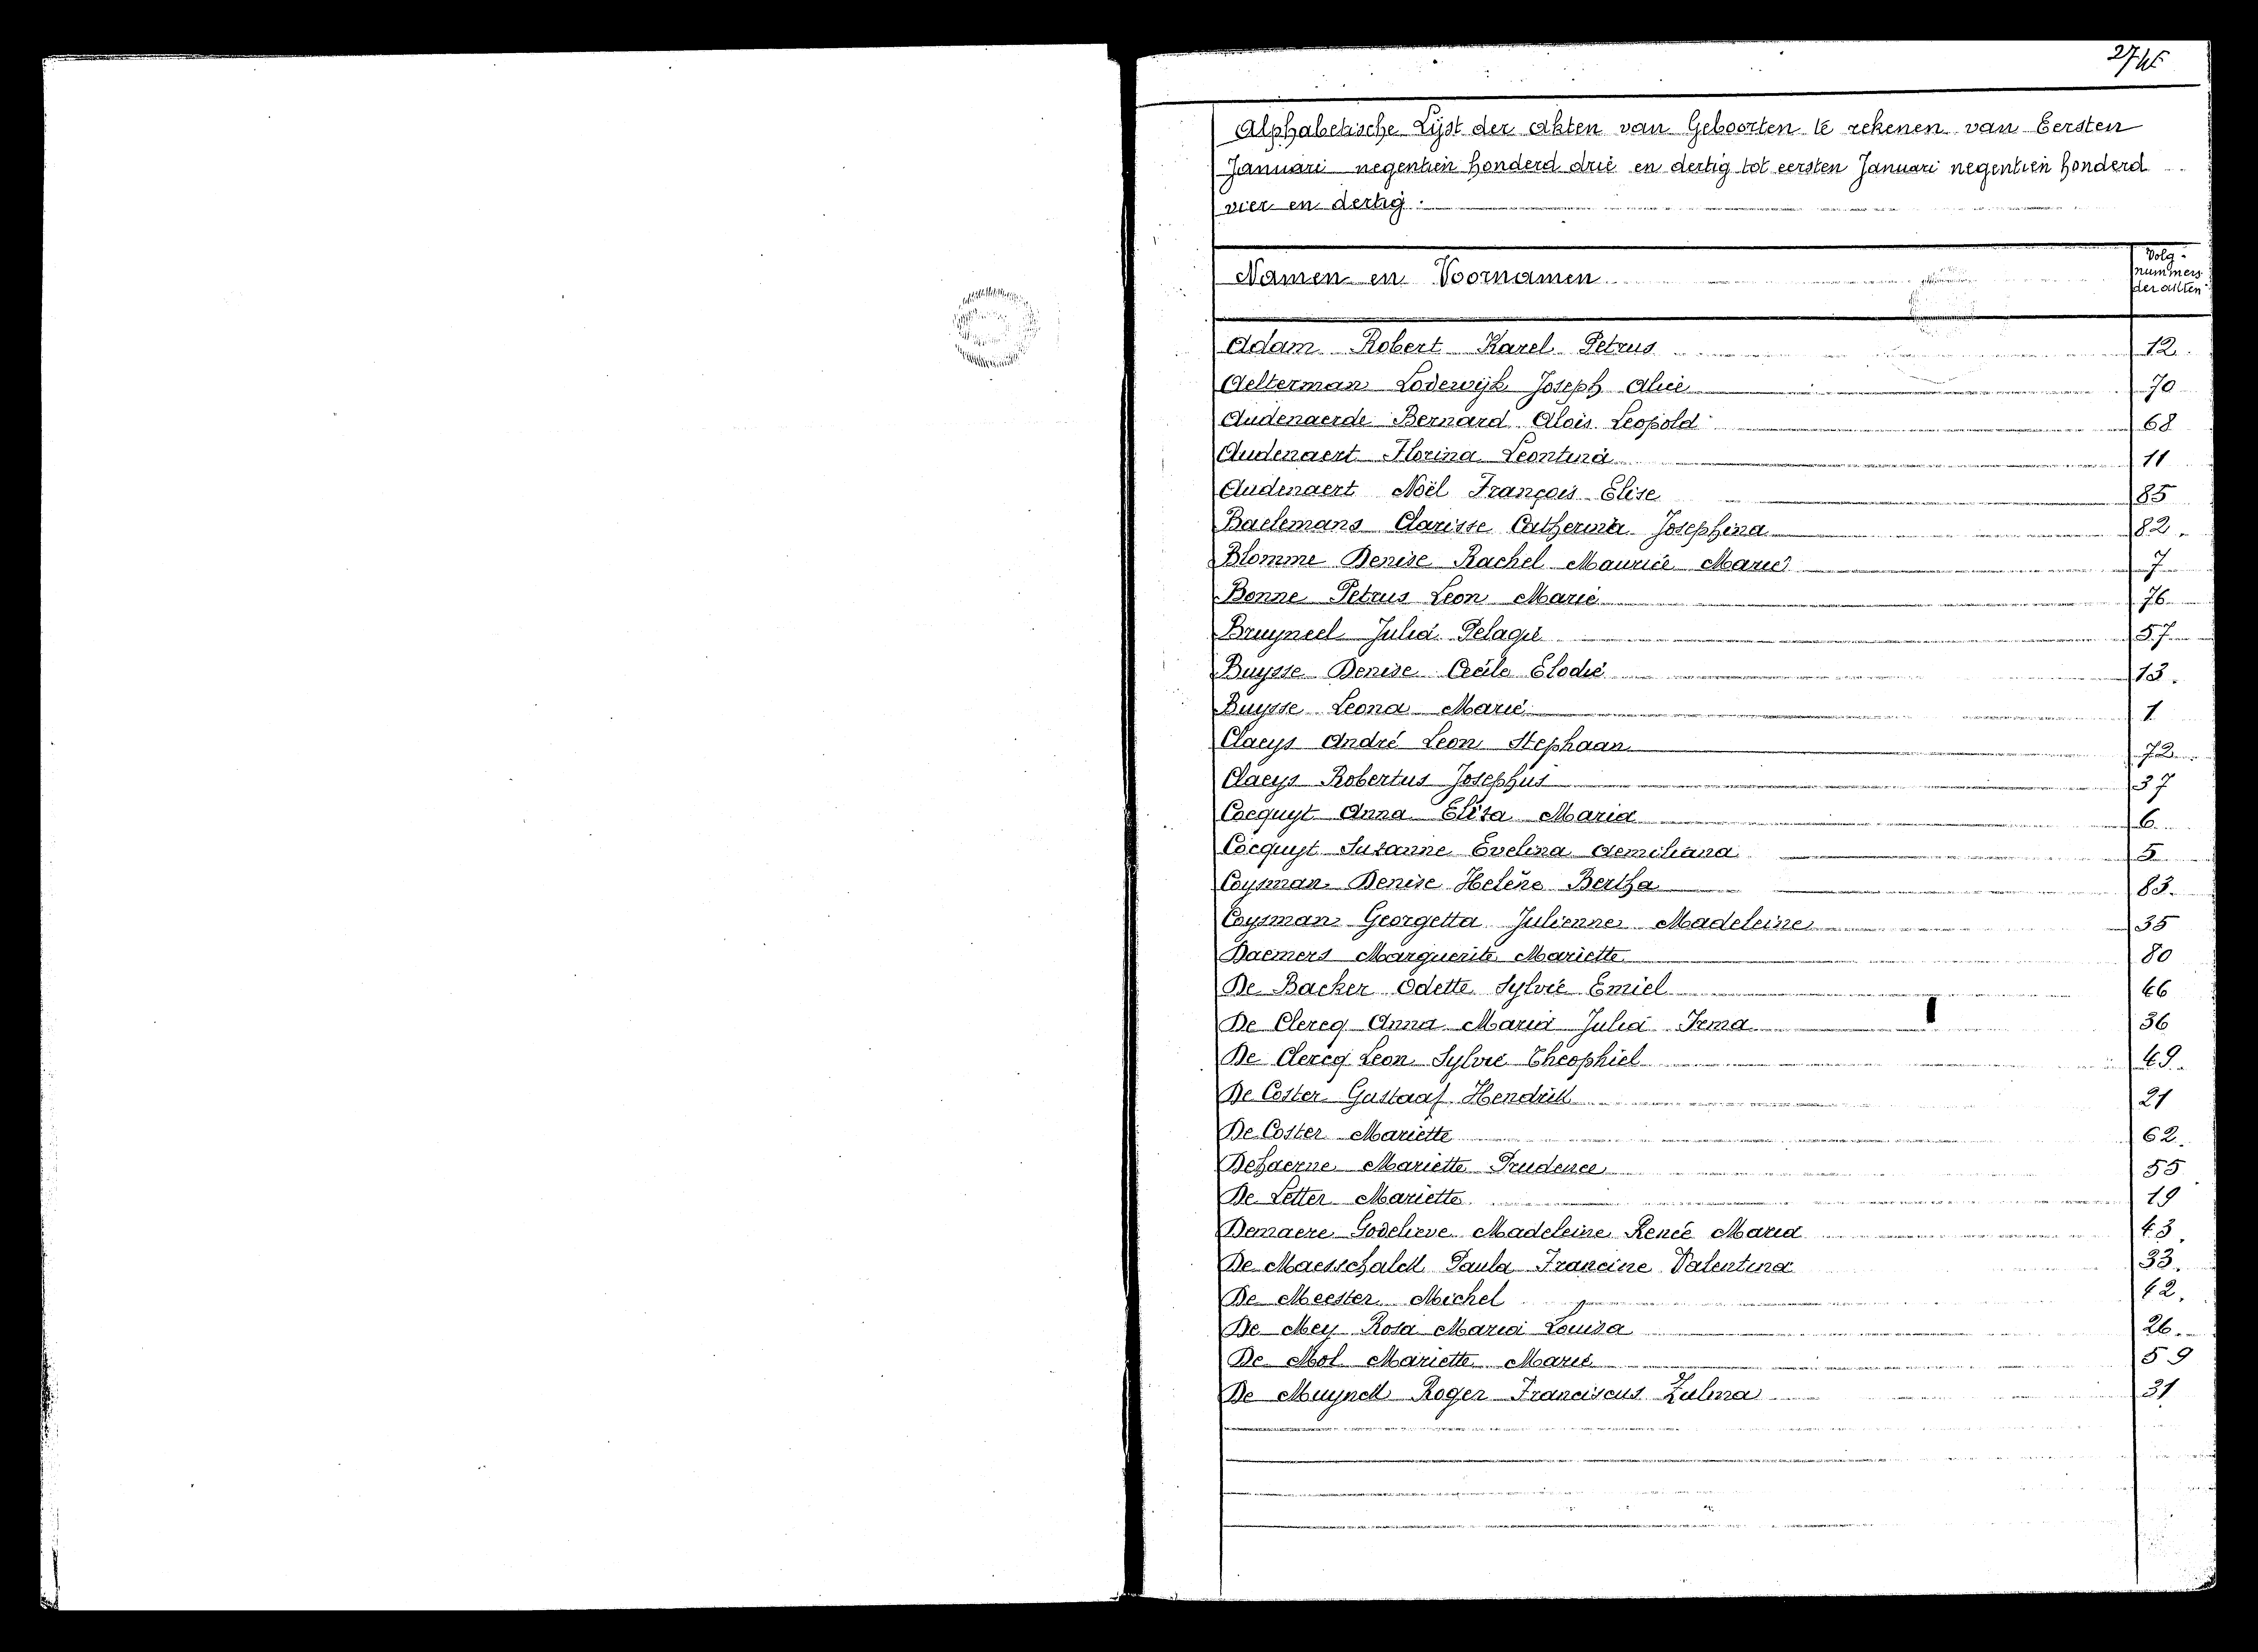 Alphabetische Lijst der akten van Geboorten te rekenen van Eersten
Januari negentien honderd drie en dertig tot eersten Januari negentien honderd
vier en dertig.
Namen en Voornamen
Volg-
nummers
der akten
Adam Robert Karel Petrus 12.
Aelterman Lodewijk Joseph Alice 70
Audenaerde Bernard Aloïs Leopold 68
Audenaert Florina Leontina 11
Audenaert Noël François Elise 85
Baelemans Clarisse Catherina Josephina 82.
Blomme Denise Rachel Maurice Marie 7
Bonne Petrus Leon Marie 76
Bruyneel Julia Pelagie 57
Buysse Denise Cecile Elodie 13.
Buysse Leona Marie 1
Claeys André Leon Stephaan 72
Claeys Robertus Josephus 37
Cocquyt Anna Elisa Maria 6
Cocquyt Suzanne Evelina Aemiliana 5
Coysman Denise Helène Bertha 83.
Coysman Georgetta Julienne Madeleine 35
Daemers Marguerite Mariette 80
De Backer Odette Sylvie Emiel 46
De Clercq Anna Maria Julia Irma 36
De Clercq Leon Sylvie Theophiel 49.
De Coster Gustaaf Hendrik 21
De Coster Mariette 62.
Dehaerne Mariette Prudence 55
De Letter Mariette 19
Demaere Godelieve Madeleine Renée Maria 43.
De Maesschalck Paula Francine Valentina 33.
De Meester Michel 42.
De Mey Rosa Maria Louisa 26.
De Mol Mariette Marie 59
De Muynck Roger Franciscus Zulma 31